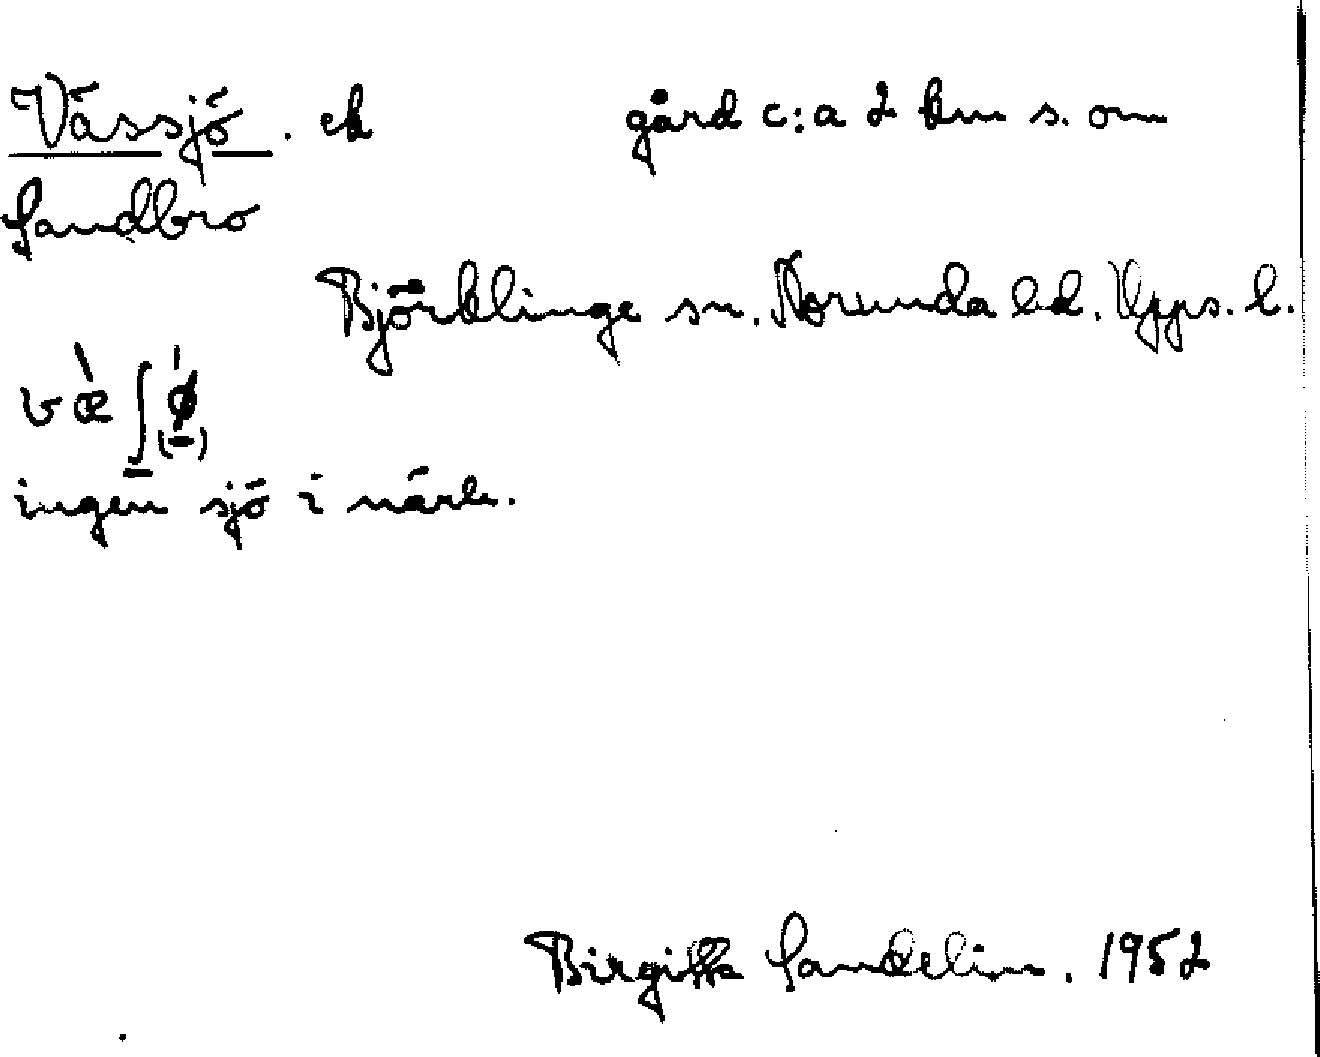 Vässjö. ek gård c:a 2 km s. om
Sandbro
Björklinge sn. Norunda hd. Upps. l.
væ̀ʃø̍
ingen sjö i närh.
Birgitta Sandelin. 1952